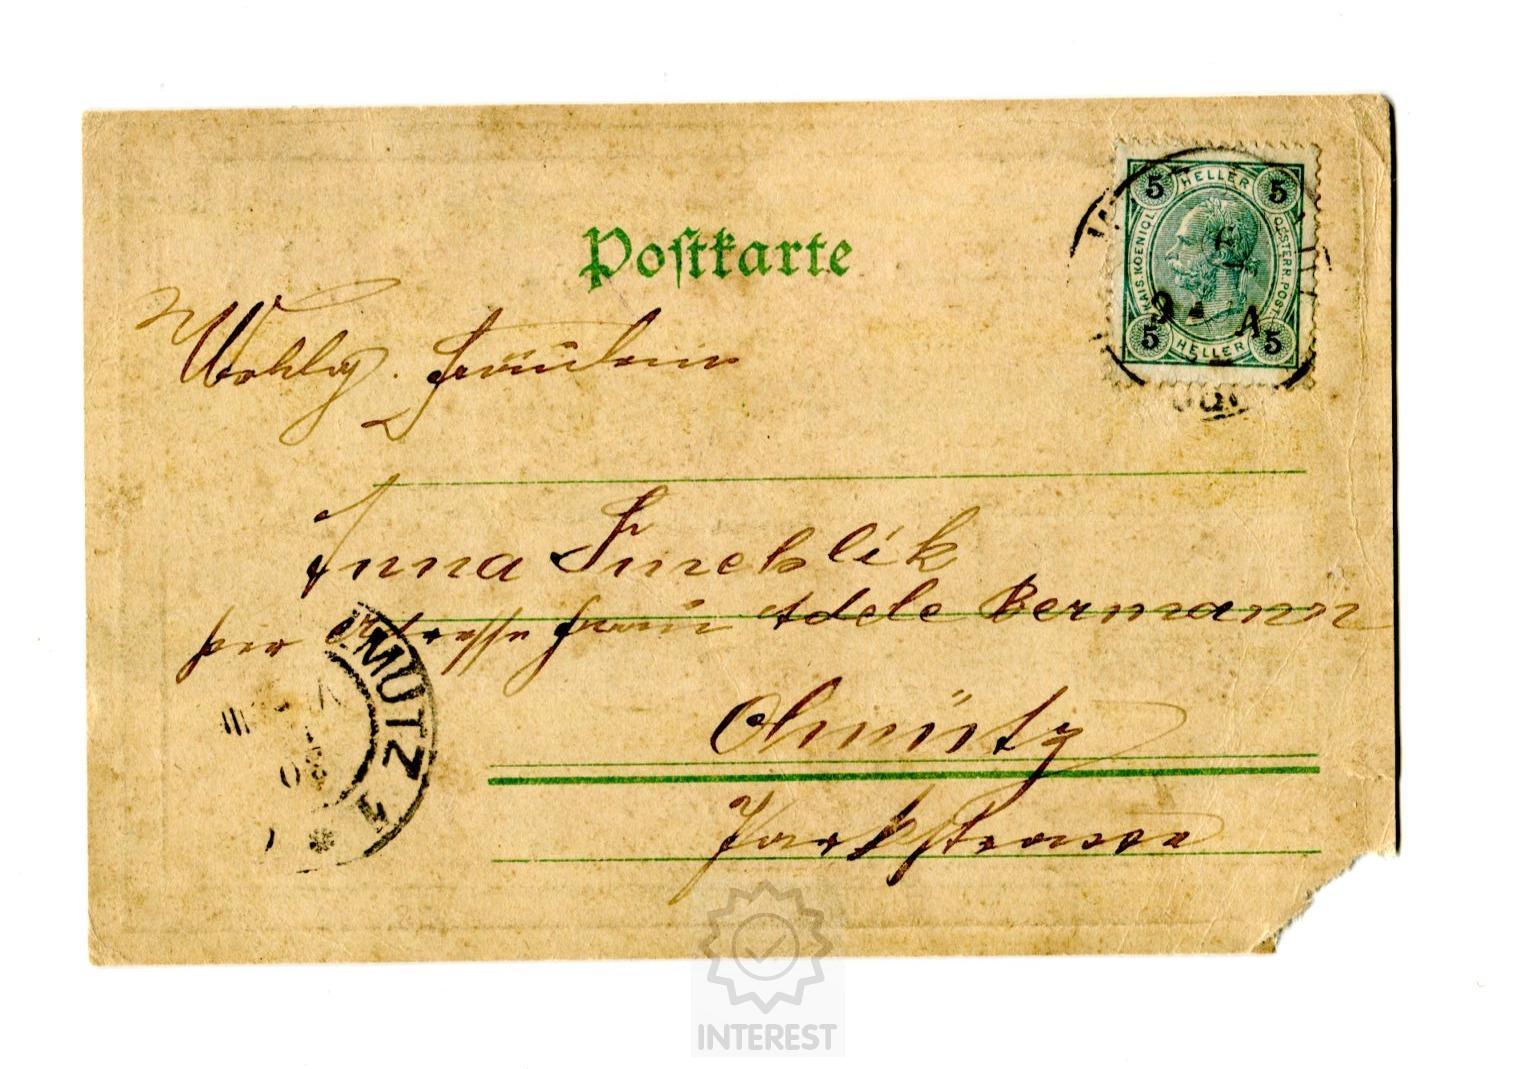 Postkarte
5 HELLER 5
KAIS. KOENIGL. OESTERR. POST.
5 HELLER 5
9 A
Wohlg. Fräulein
Anna
per Adresse Frau Adele Bermann
MUTZ 1
Olmütz
Parkstrasse
INTEREST